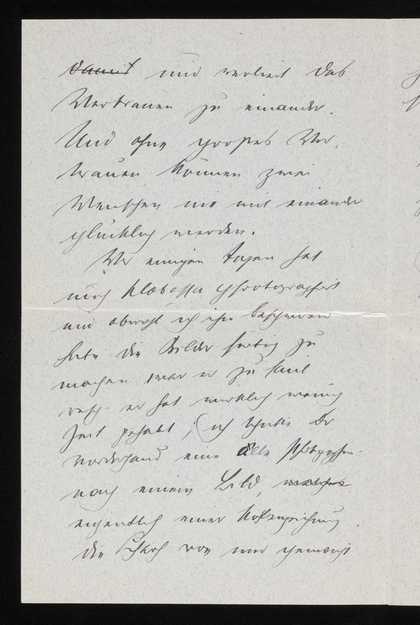 damit und verliert das
Vertrauen zu einander.
Und ohne grosses Ver-
trauen können zwei
Menschen nie mit einander
glücklich werden.
Vor einigen Tagen hat
mich photographiert
und obwohl ich ihn beschworen
habe die Bilder fertig zu
machen war er zu faul
resp. er hat wirklich wenig
Zeit gehabt, ich schicke Dir
vorderhand eine alte
nach einem Bild, welches
eigentlich einer Holzzeichnung
die von mir gemacht